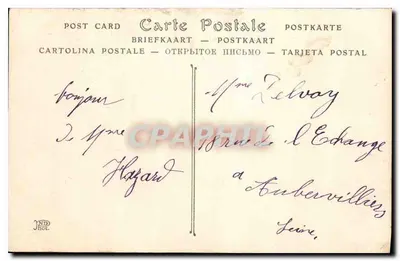 POST CARD Carte Postale POSTKARTE
BRIEFKAART — POSTKAART
CARTOLINA POSTALE — ОТКРЫТОЕ ПИСЬМО — TARJETA POSTAL
bonjour
De Mme
Hazard
Mme Delvoy
rue de l'Echange
a
Aubervilliers
Seine
CPARAMA
ND